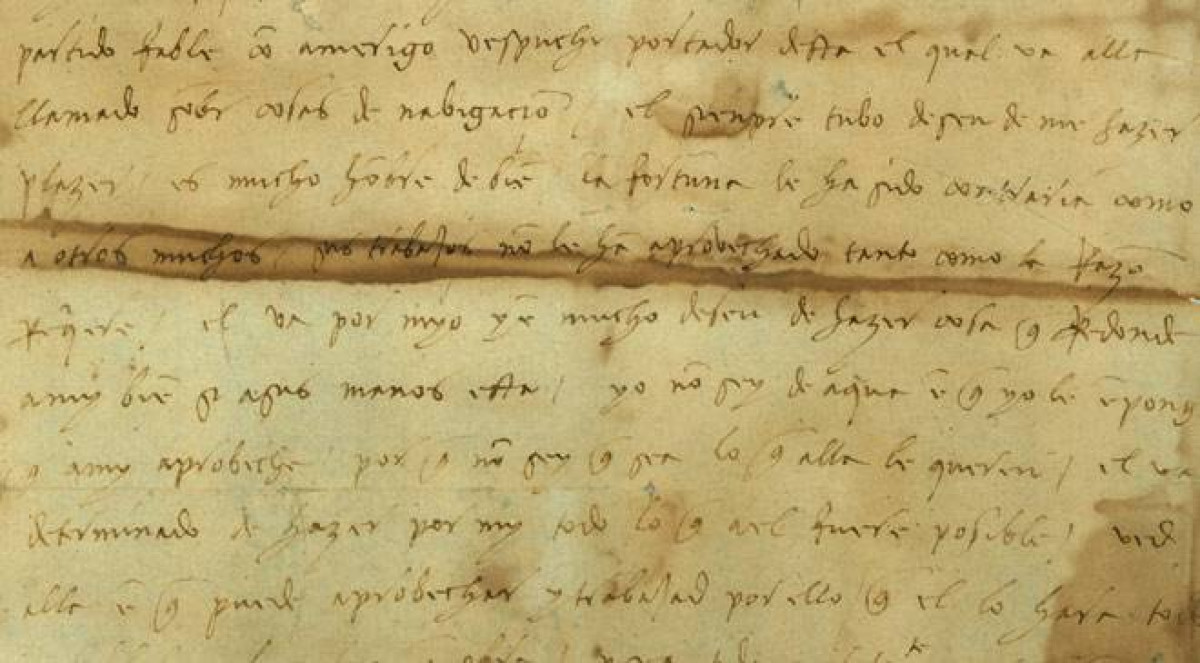 partido fable cõ amerigo vespuchi portador desta el qual va alla
llamado sobr cosas de nabigaciõ / el sienpre tubo deseu de me hazer
plazer / es mucho hõbre de biẽ la fortuna le ha sido contraria como
a otros muchos / sus trabajos nõ le hã aprobechado tanto como la razõ
reqere / el va por myo y ẽ mucho deseu de hazer cosa q redonde
a my biẽ si a sus manos esta / yo nõ sey de aqua ẽ q yo le ẽponga
q a my aprobeche por q nõ sey q sea lo q alla le queren / el va
determinado de hazer por my todo lo q a el fuere posible / ved
alla ẽ q puede aprobechar y trabajad por ello q el lo hara